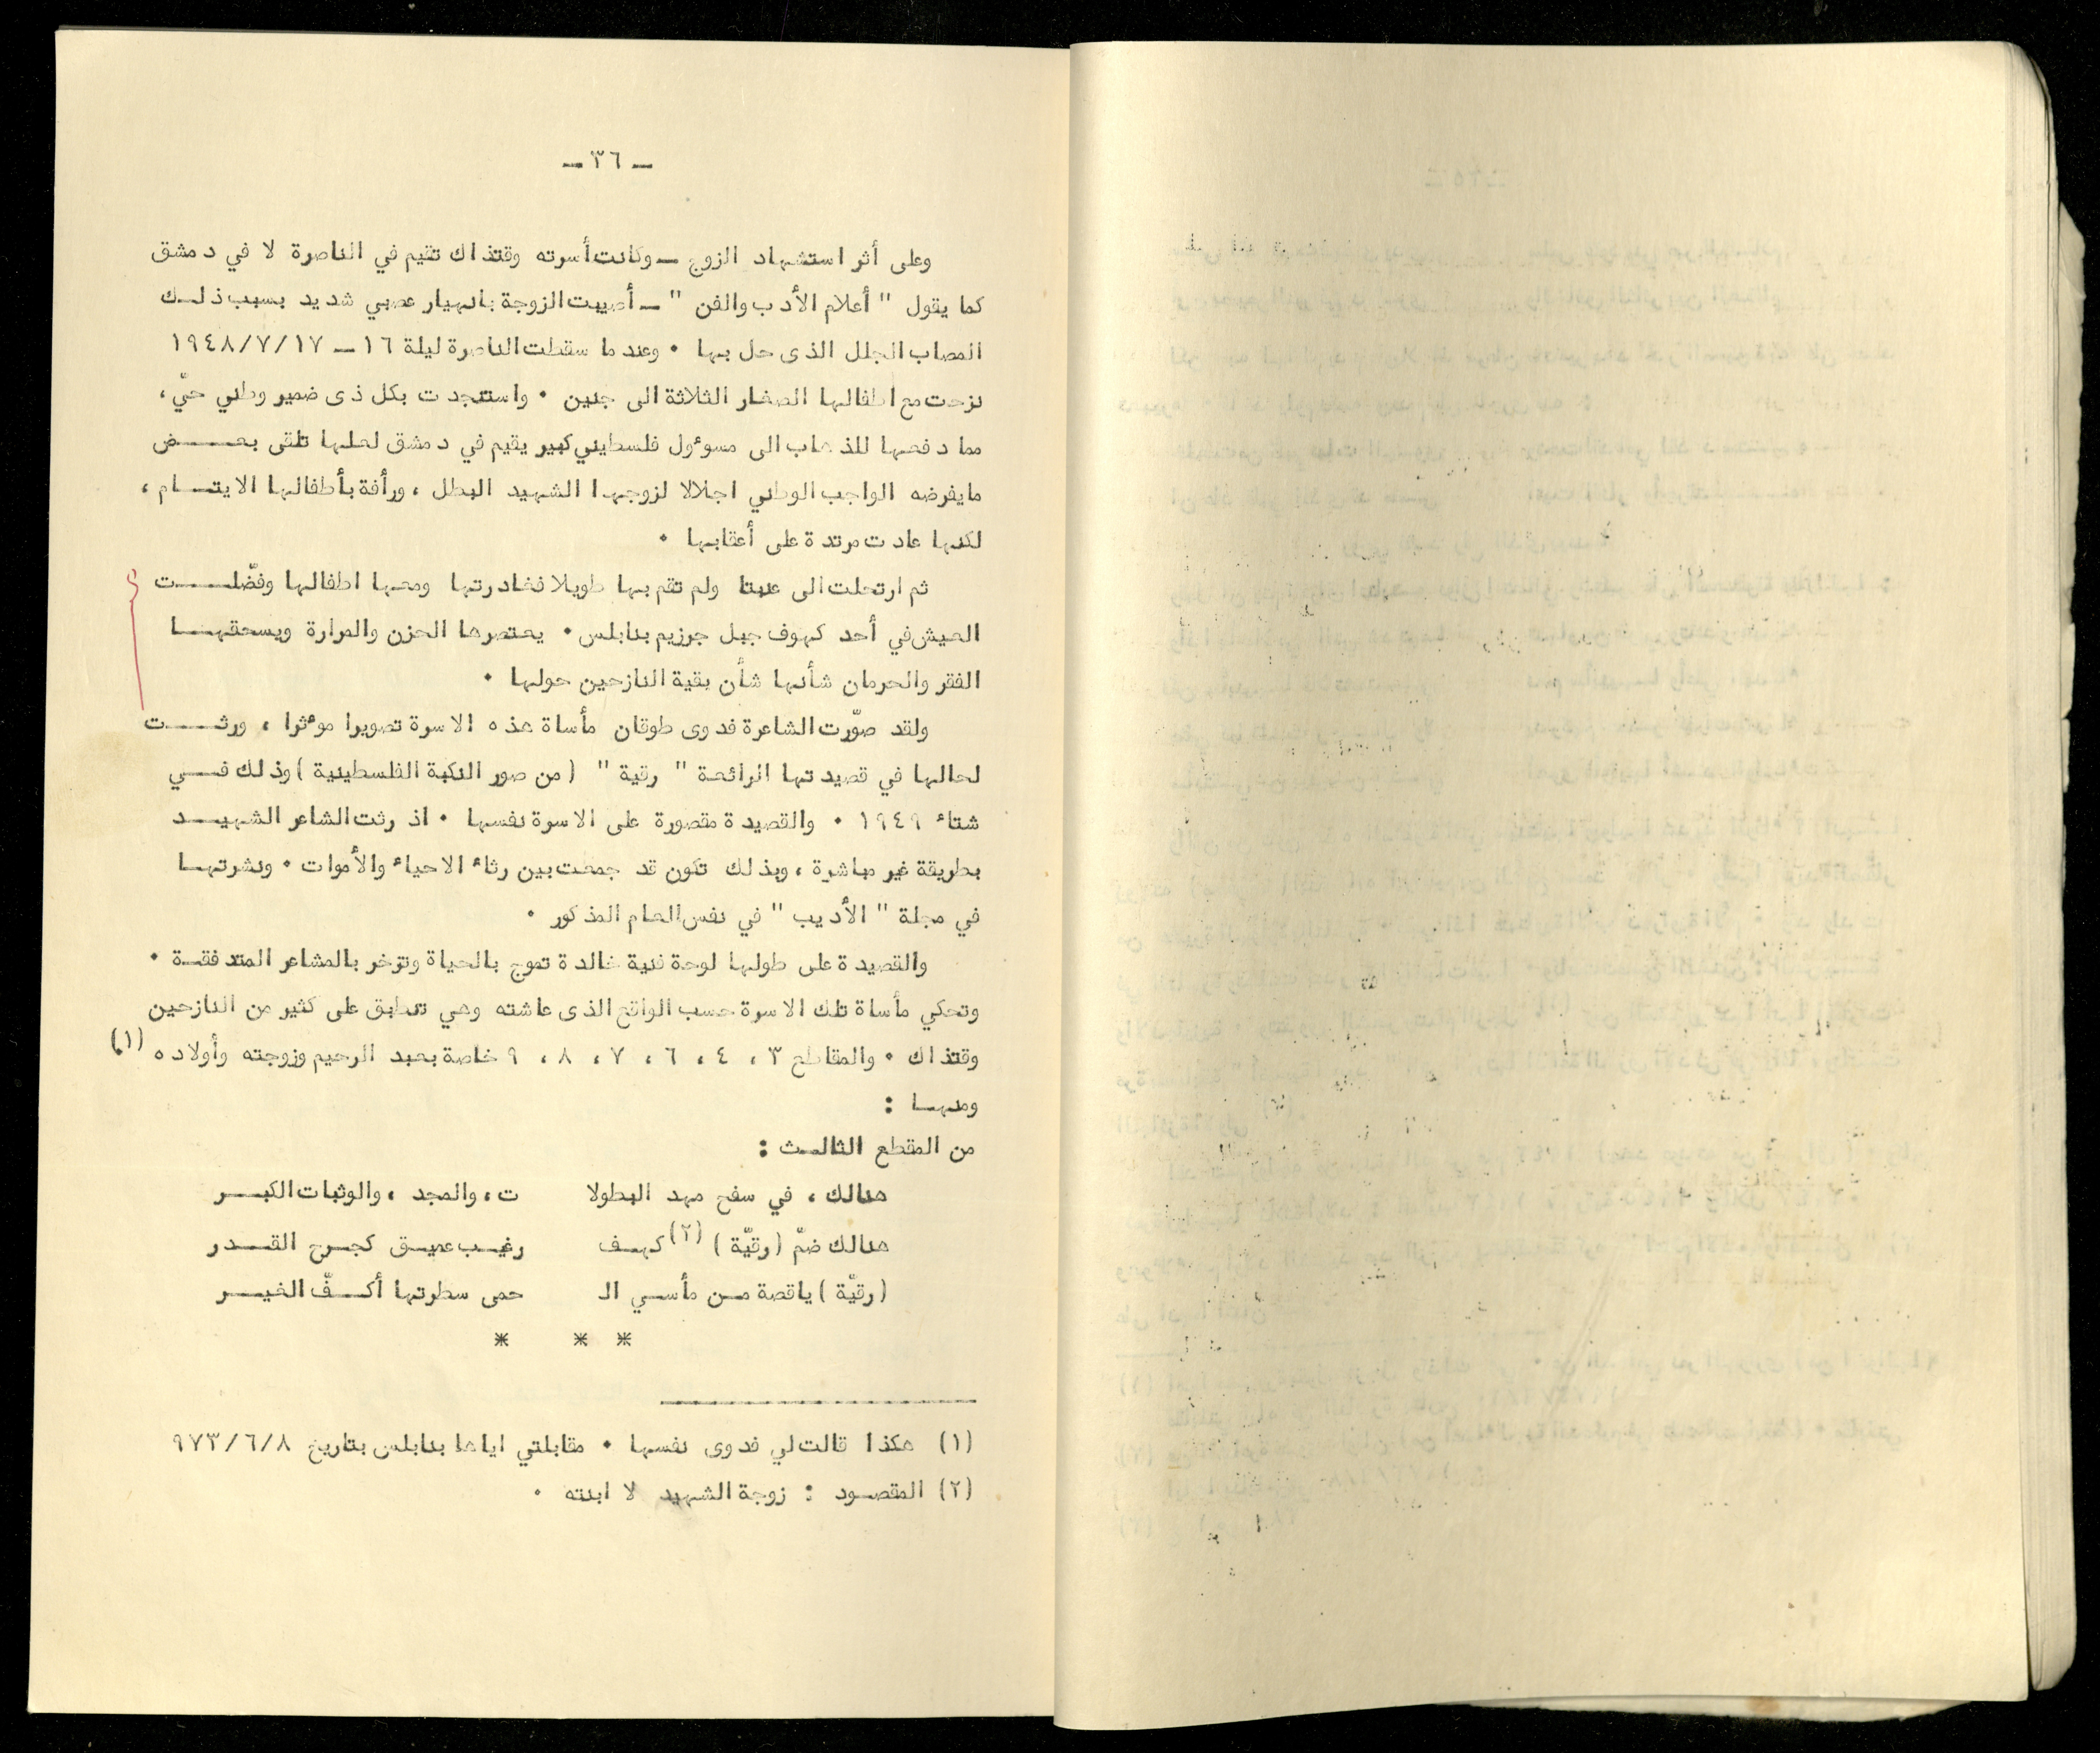 — ٣٦ —
وعلى أثر استشهاد الزوج — وكانت أسرته وقتذاك تقيم في الناصرة لا في دمشق
كما يقول " أعلام الأدب والفن " — أصيبت الزوجة بانهيار عصبي شديد بسبب ذلك
المصاب الجلل الذى حل بها ٠ وعندما سقطت الناصرة ليلة ١٦ — ١٩٤٨/٧/١٧
نزحت مع اطفالها الصغار الثلاثة الى جنين ٠ واستنجدت بكل ذى ضمير وطني حيّ ،
مما دفعها للذهاب الى مسوءول فلسطيني كبير يقيم في دمشق لعلها تلقى بعض
مايفرضه الواجب الوطني اجلالا لزوجها الشهيد البطل ، ورأفة بأطفالها الايتام ،
لكنها عادت مرتدة على أعقابها ٠
ثم ارتحلت الى عنبتا ولم تقم بها طويلا فغادرتها ومعها اطفالها وفضّلت
العيش في أحد كهوف جبل جرزيم بنابلس ٠ يعتصرها الحزن والمرارة ويسحقها
الفقر والحرمان شأنها شأن بقية النازحين حولها ٠
ولقد صوّرت الشاعرة فدوى طوقان مأساة هذه الاسرة تصويرا موءثرا ، ورثت
لحالها في قصيدتها الرائعة " رقية " ( من صور النكبة الفلسطينية ) وذلك في
شتاء ١٩٤٩ ٠ والقصيدة مقصورة على الاسرة نفسها ٠ اذ رثت الشاعر الشهيد
بطريقة غير مباشرة ، وبذلك تكون قد جمعت بين رثاء الاحياء والأموات ٠ ونشرتها
في مجلة " الأديب " في نفس العام المذكور ٠
والقصيدة على طولها لوحة فنية خالدة تموج بالحياة وتزخر بالمشاعر المتدفقة ٠
وتحكي مأساة تلك الاسرة حسب الواقع الذى عاشته وهي تنطبق على كثير من النازحين
وقتذاك ٠ والمقاطع ٣ ، ٤ ، ٦ ، ٧ ، ٨ ، ٩ خاصة بعبد الرحيم وزوجته وأولاده (١)
ومنها :
من المقطع الثالث :
هنالك ، في سفح مهد البطولا ت ، والمجد ، والوثبات الكبر
هنالك ضمّ ( رقيّة ) (٢) كهف رغيب عميق كجرح القدر
( رقيّة ) ياقصة من مأسي الـ حمى سطرتها أكفّ الغير
* * *
(١) هكذا قالت لي فدوى نفسها ٠ مقابلتي اياها بنابلس بتاريخ ٩٧٣/٦/٨
(٢) المقصود : زوجة الشهيد لا ابنته ٠